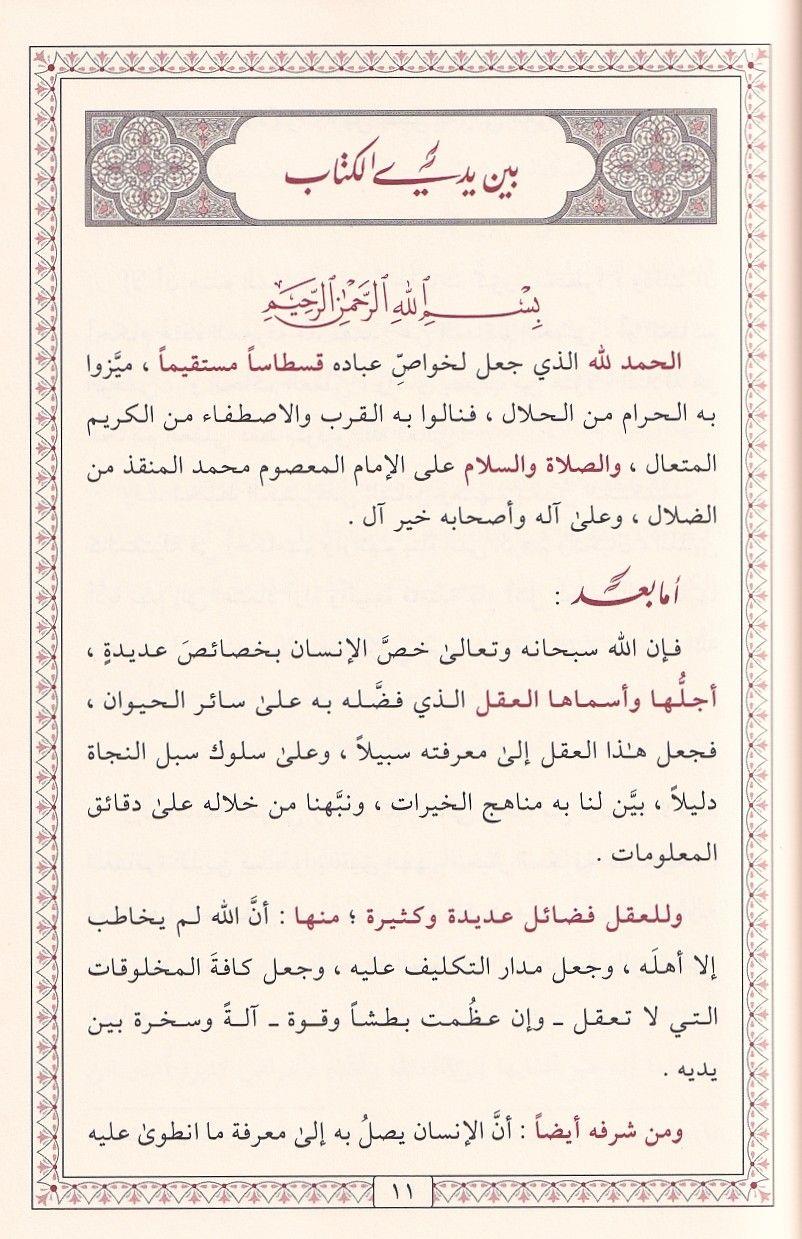 بين يدي الكتاب
بِسْمِ ٱللهِ ٱلرَّحْمٰنِ ٱلرَّحِيْمِ
الحمد لله الذي جعل لخواصِّ عباده قسطاساً مستقيماً ، ميَّزوا
به الحرام من الحلال ، فنالوا به القرب والاصطفاء من الكريم
المتعال ، والصلاة والسلام على الإمام المعصوم محمد المنقذ من
الضلال ، وعلىٰ آله وأصحابه خير آل .
أما بعد :
فإن الله سبحانه وتعالىٰ خصَّ الإنسان بخصائصَ عديدةٍ ،
أجلُّها وأسماها العقل الذي فضَّله به علىٰ سائر الحيوان ،
فجعل هـٰذا العقل إلىٰ معرفته سبيلاً ، وعلىٰ سلوك سبل النجاة
دليلاً ، بيَّن لنا به مناهج الخيرات ، ونبَّهنا من خلاله علىٰ دقائق
المعلومات .
وللعقل فضائل عديدة وكثيرة ؛ منها : أنَّ الله لم يخاطب
إلا أهلَه ، وجعل مدار التكليف عليه ، وجعل كافةَ المخلوقات
التي لا تعقل ـ وإن عظُمت بطشاً وقوة ـ آلةً وسخرة بين
يديه .
ومن شرفه أيضاً : أنَّ الإنسان يصلُ به إلىٰ معرفة ما انطوىٰ عليه
١١